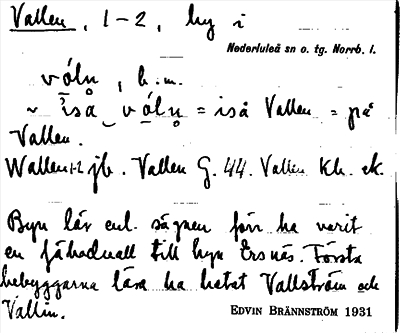 Vallen, 1-2, by i
Nederluleå sn o. tg. Norrb. l.
vól̥n̥, b.m.
~ ìså vól̥n̥ = iså Vallen = på
Vallen.
Wallen 1-2 jb. Vallen G. 44. Vallen Kh. ek.
Byn lär enl. sägnen förr ha varit
en fäbodvall till byn Ersnäs. Första
bebyggarna lära ha hetat Vallström och
Vallin.
EDVIN BRÄNNSTRÖM 1931